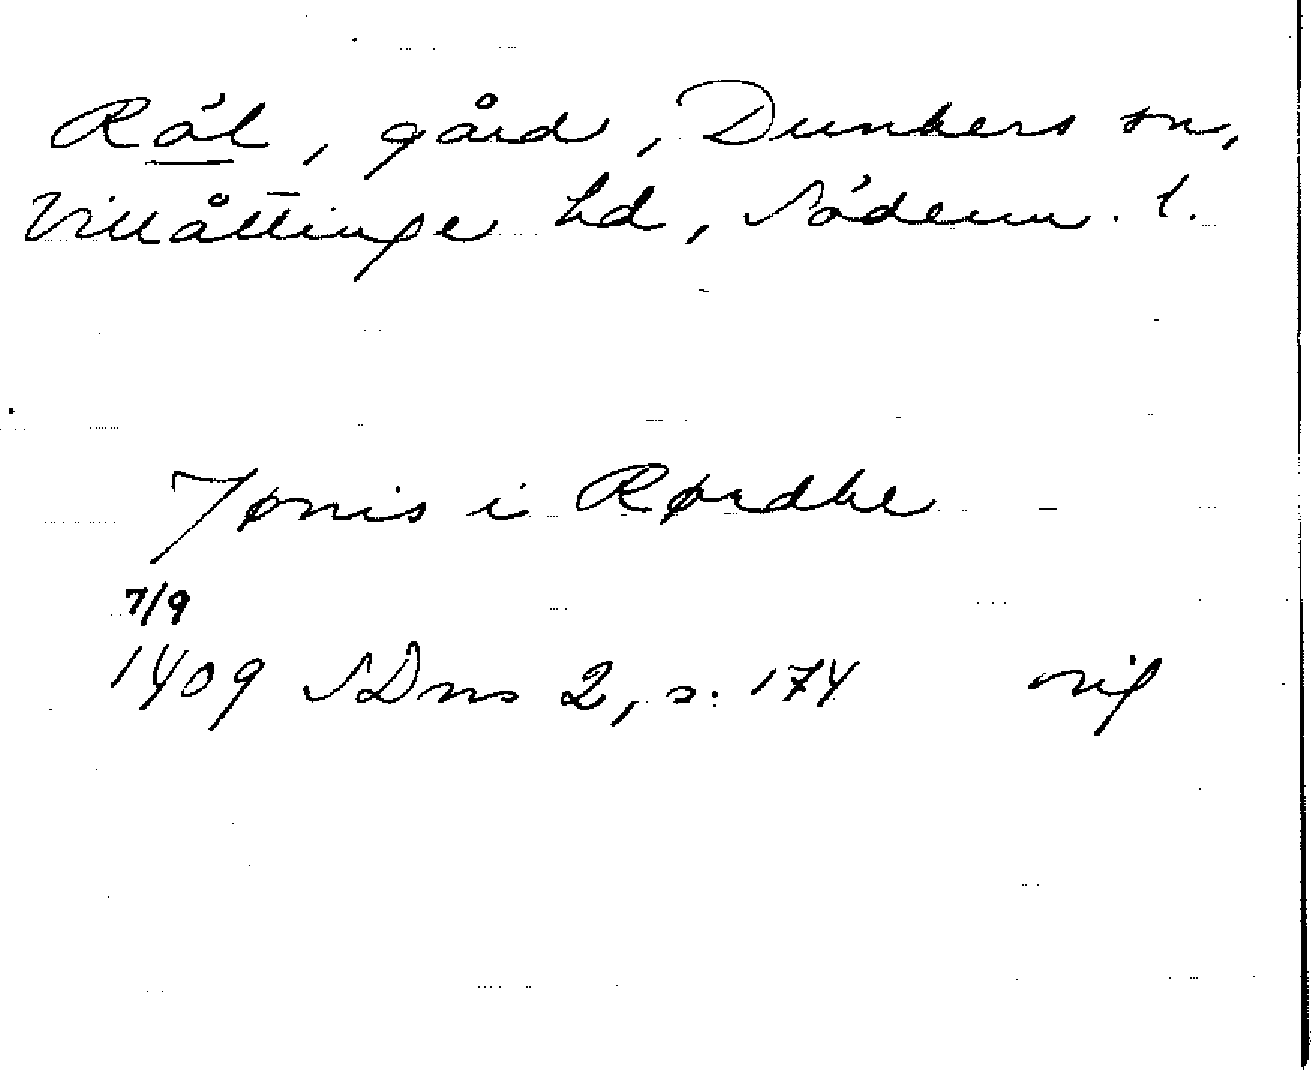 Röl, gård, Dunkers sn,
Villåttinge hd, Söderm. l.
Jønis i Rørdhe
7/9
1409 SDns 2, s. 174